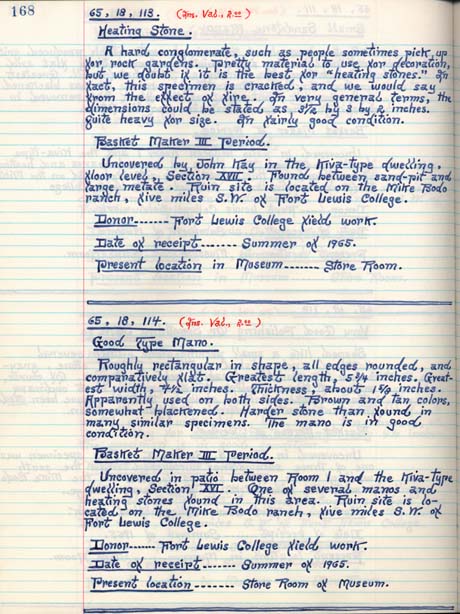 168
65, 18, 113. (Ins. Val., 2.00)
Heating Stone.
A hard conglomerate, such as people sometimes pick up
for rock gardens. Pretty material to use for decoration,
but we doubt if it is the best for "heating stones." In
fact, this specimen is cracked, and we would say
from the effect of fire. In very general terms, the
dimensions could be stated as, by 8 by 2 inches.
Quite heavy for size. In fairly good condition.
Basket Maker III Period.
Uncovered by John Kay in the Kiva-type dwelling,
floor level, Section XVII. Found between sand-pit and
large metate. Ruin site is located on the Mike Bodo
ranch, five miles S.W. of Fort Lewis College.
Donor------ Fort Lewis College field work.
Date of receipt------- Summer of 1965.
Present location in Museum------- Store Room.
65, 18, 114. (Ins. Val., 2.00)
Good Type Mano.
Roughly rectangular in shape, all edges rounded, and
comparatively flat. Greatest length, 5¾ inches. Great-
est width, 4½ inches. Thickness, about inches.
Apparently used on both sides. Brown and tan colors,
somewhat blackened. Harder stone than found in
many similar specimens. The mano is in good
condition.
Basket Maker III Period.
Uncovered in patio between Room 1 and the Kiva-type
dwelling, Section XVI. One of several manos and
heating stones found in this area. Ruin site is lo-
cated on the Mike Bodo ranch, five miles S.W. of
Fort Lewis College.
Donor------- Fort Lewis College field work.
Date of receipt------- Summer of 1965.
Present location------- Store Room of Museum.